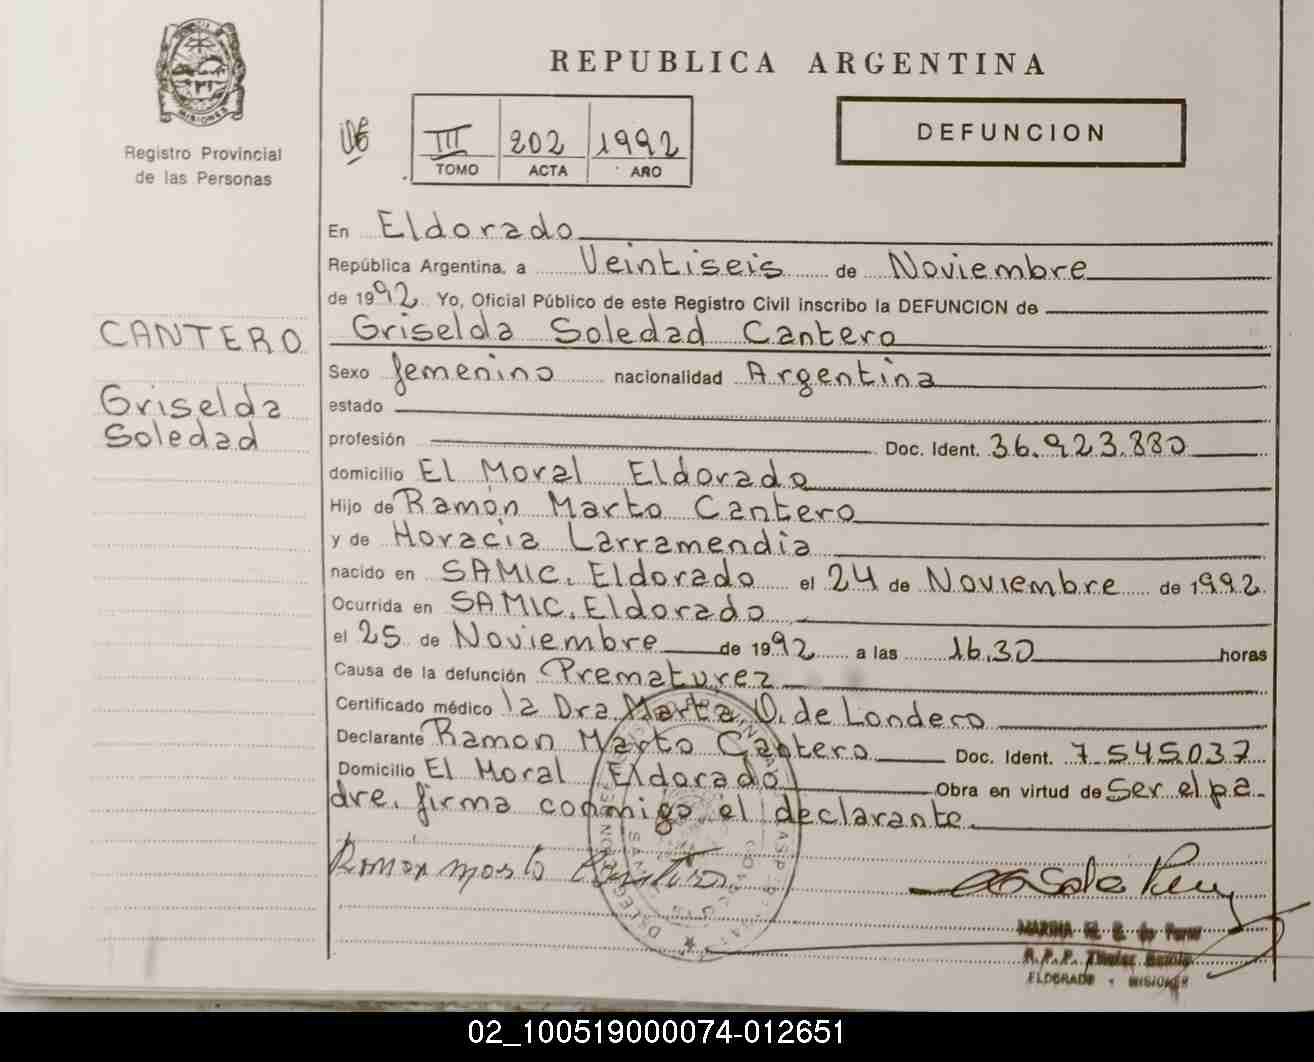 MISIONES
Registro Provincial
de las Personas
REPUBLICA ARGENTINA
III 202 1992
TOMO ACTA AÑO
DEFUNCION
En Eldorado
República Argentina, a Veintiseis de Noviembre
de 1992 Yo, Oficial Público de este Registro Civil inscribo la DEFUNCION de
CANTERO
Griselda
Soledad
Griselda Soledad Cantero
Sexo femenino nacionalidad Argentina
estado
profesión Doc. Ident. 36.923.880
domicilio El Moral Eldorado
Hijo de Ramón Marto Cantero
y de Horacia Larramendia
nacido en SAMIC. Eldorado el 24 de Noviembre de 1992.
Ocurrida en SAMIC. Eldorado
el 25 de Noviembre de 1992 a las 16.30 horas
Causa de la defunción Prematurez
Certificado médico la Dra Marta O. de Londero
Declarante Ramon Marto Cantero Doc. Ident. 7.545.037
Domicilio El Moral Eldorado Obra en virtud de Ser el pa-
dre. firma conmigo el declarante.
Ramon Marto Cantero
ELDORADO - MISIONES
02_100519000074-012651